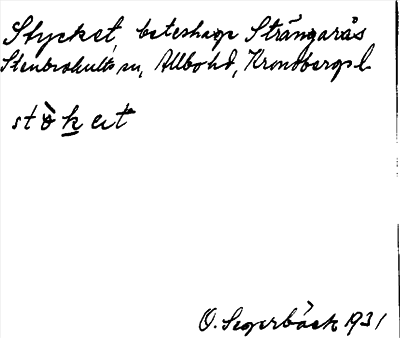 Stycket, beteshage Strängarås
Stenbrohults sn, Allbo hd, Kronobergs l.
stò̀k et
O. Segerbäck 1931